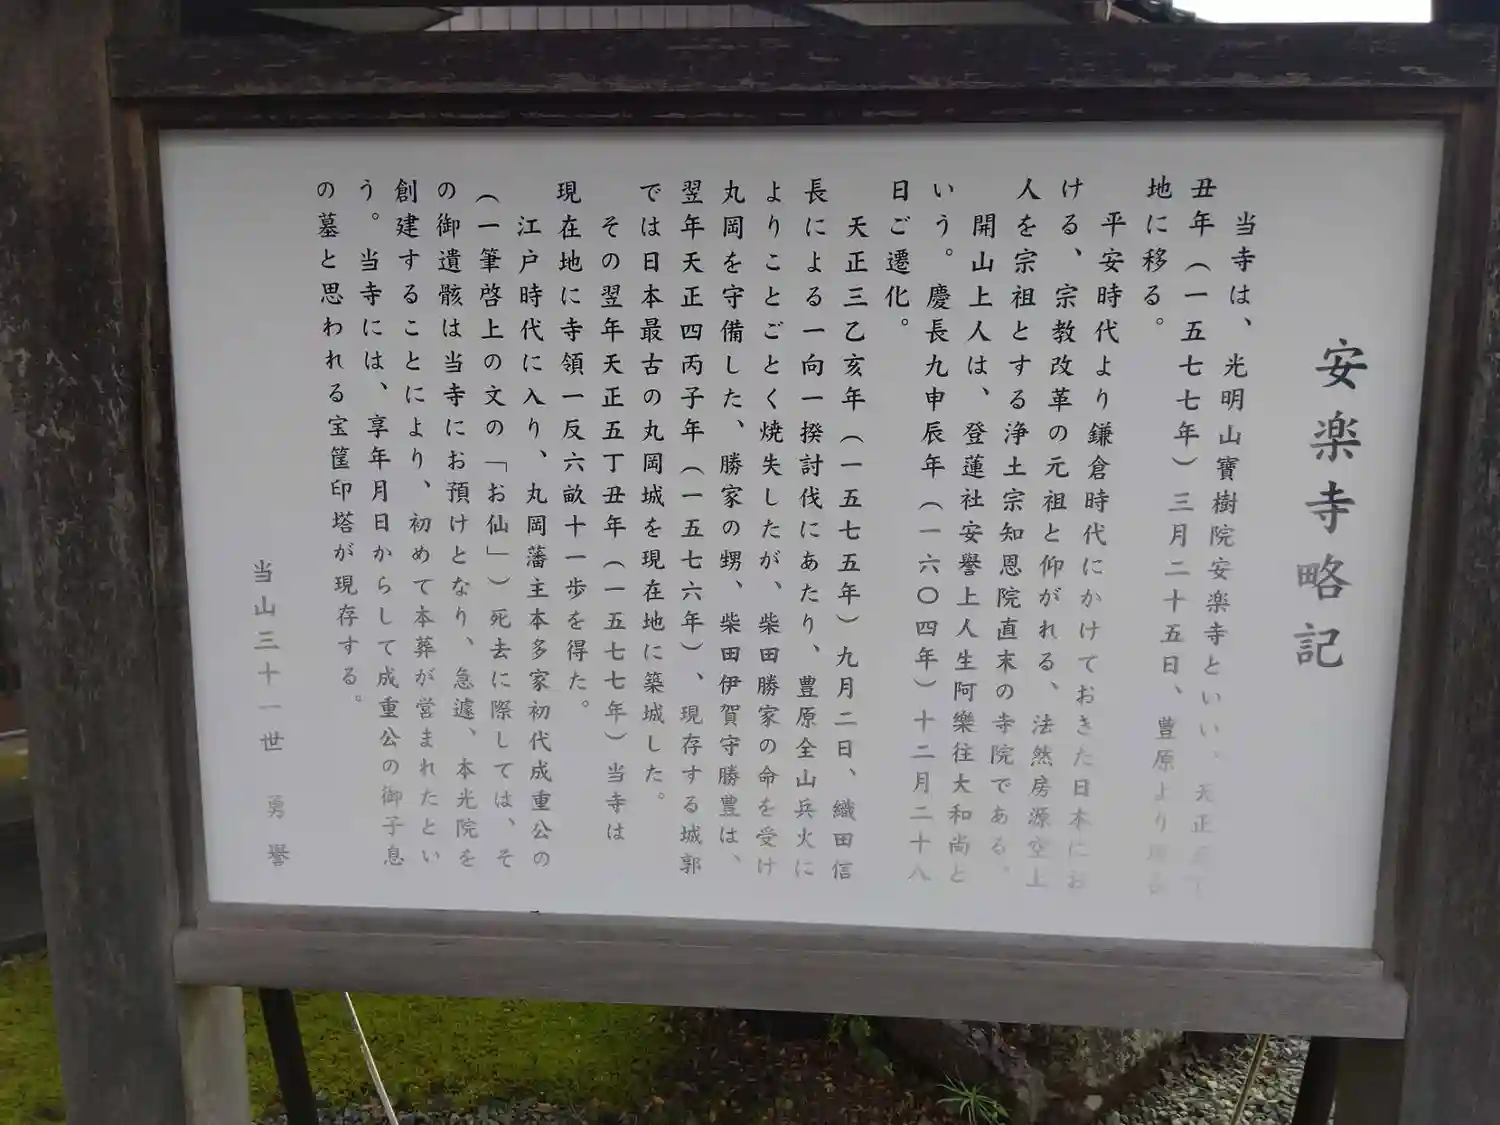 安楽寺略記
当寺は、光明山寶樹院安楽寺といい、天正五丁
丑年（一五七七年）三月二十五日、豊原より現在
地に移る。
平安時代より鎌倉時代にかけておきた日本にお
ける、宗教改革の元祖と仰がれる、法然房源空上
人を宗祖とする浄土宗知恩院直末の寺院である。
開山上人は、登蓮社安譽上人生阿樂往大和尚と
いう。慶長九申辰年（一六〇四年）十二月二十八
日ご遷化。
天正三乙亥年（一五七五年）九月二日、織田信
長による一向一揆討伐にあたり、豊原全山兵火に
よりことごとく焼失したが、柴田勝家の命を受け
丸岡を守備した、勝家の甥、柴田伊賀守勝豊は、
翌年天正四丙子年（一五七六年）、現存する城郭
では日本最古の丸岡城を現在地に築城した。
その翌年天正五丁丑年（一五七七年）当寺は
現在地に寺領一反六畝十一歩を得た。
江戸時代に入り、丸岡藩主本多家初代成重公の
（一筆啓上の文の「お仙」）死去に際しては、そ
の御遺骸は当寺にお預けとなり、急遽、本光院を
創建することにより、初めて本葬が営まれたとい
う。当寺には、享年月日からして成重公の御子息
の墓と思われる宝筐印塔が現存する。
当山三十一世 勇譽